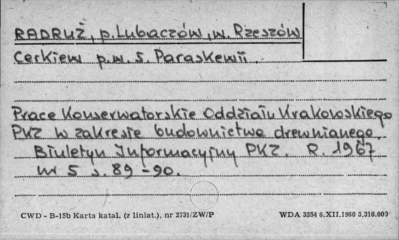 RADRUŻ, p. Lubaczów, w. Rzeszów
Cerkiew p.w. S. Paraskewii
Prace Konserwatorskie Oddziału Krakowskiego
PKZ w zakresie budownictwa drewnianego.
Biuletyn Informacyjny PKZ. R. 1967
nr 5 s. 89-90.
CWD - B-15b Karta katal. (z liniat.), nr 2731/ZW/P WDA 3354 6.XII.1960 3.310.000